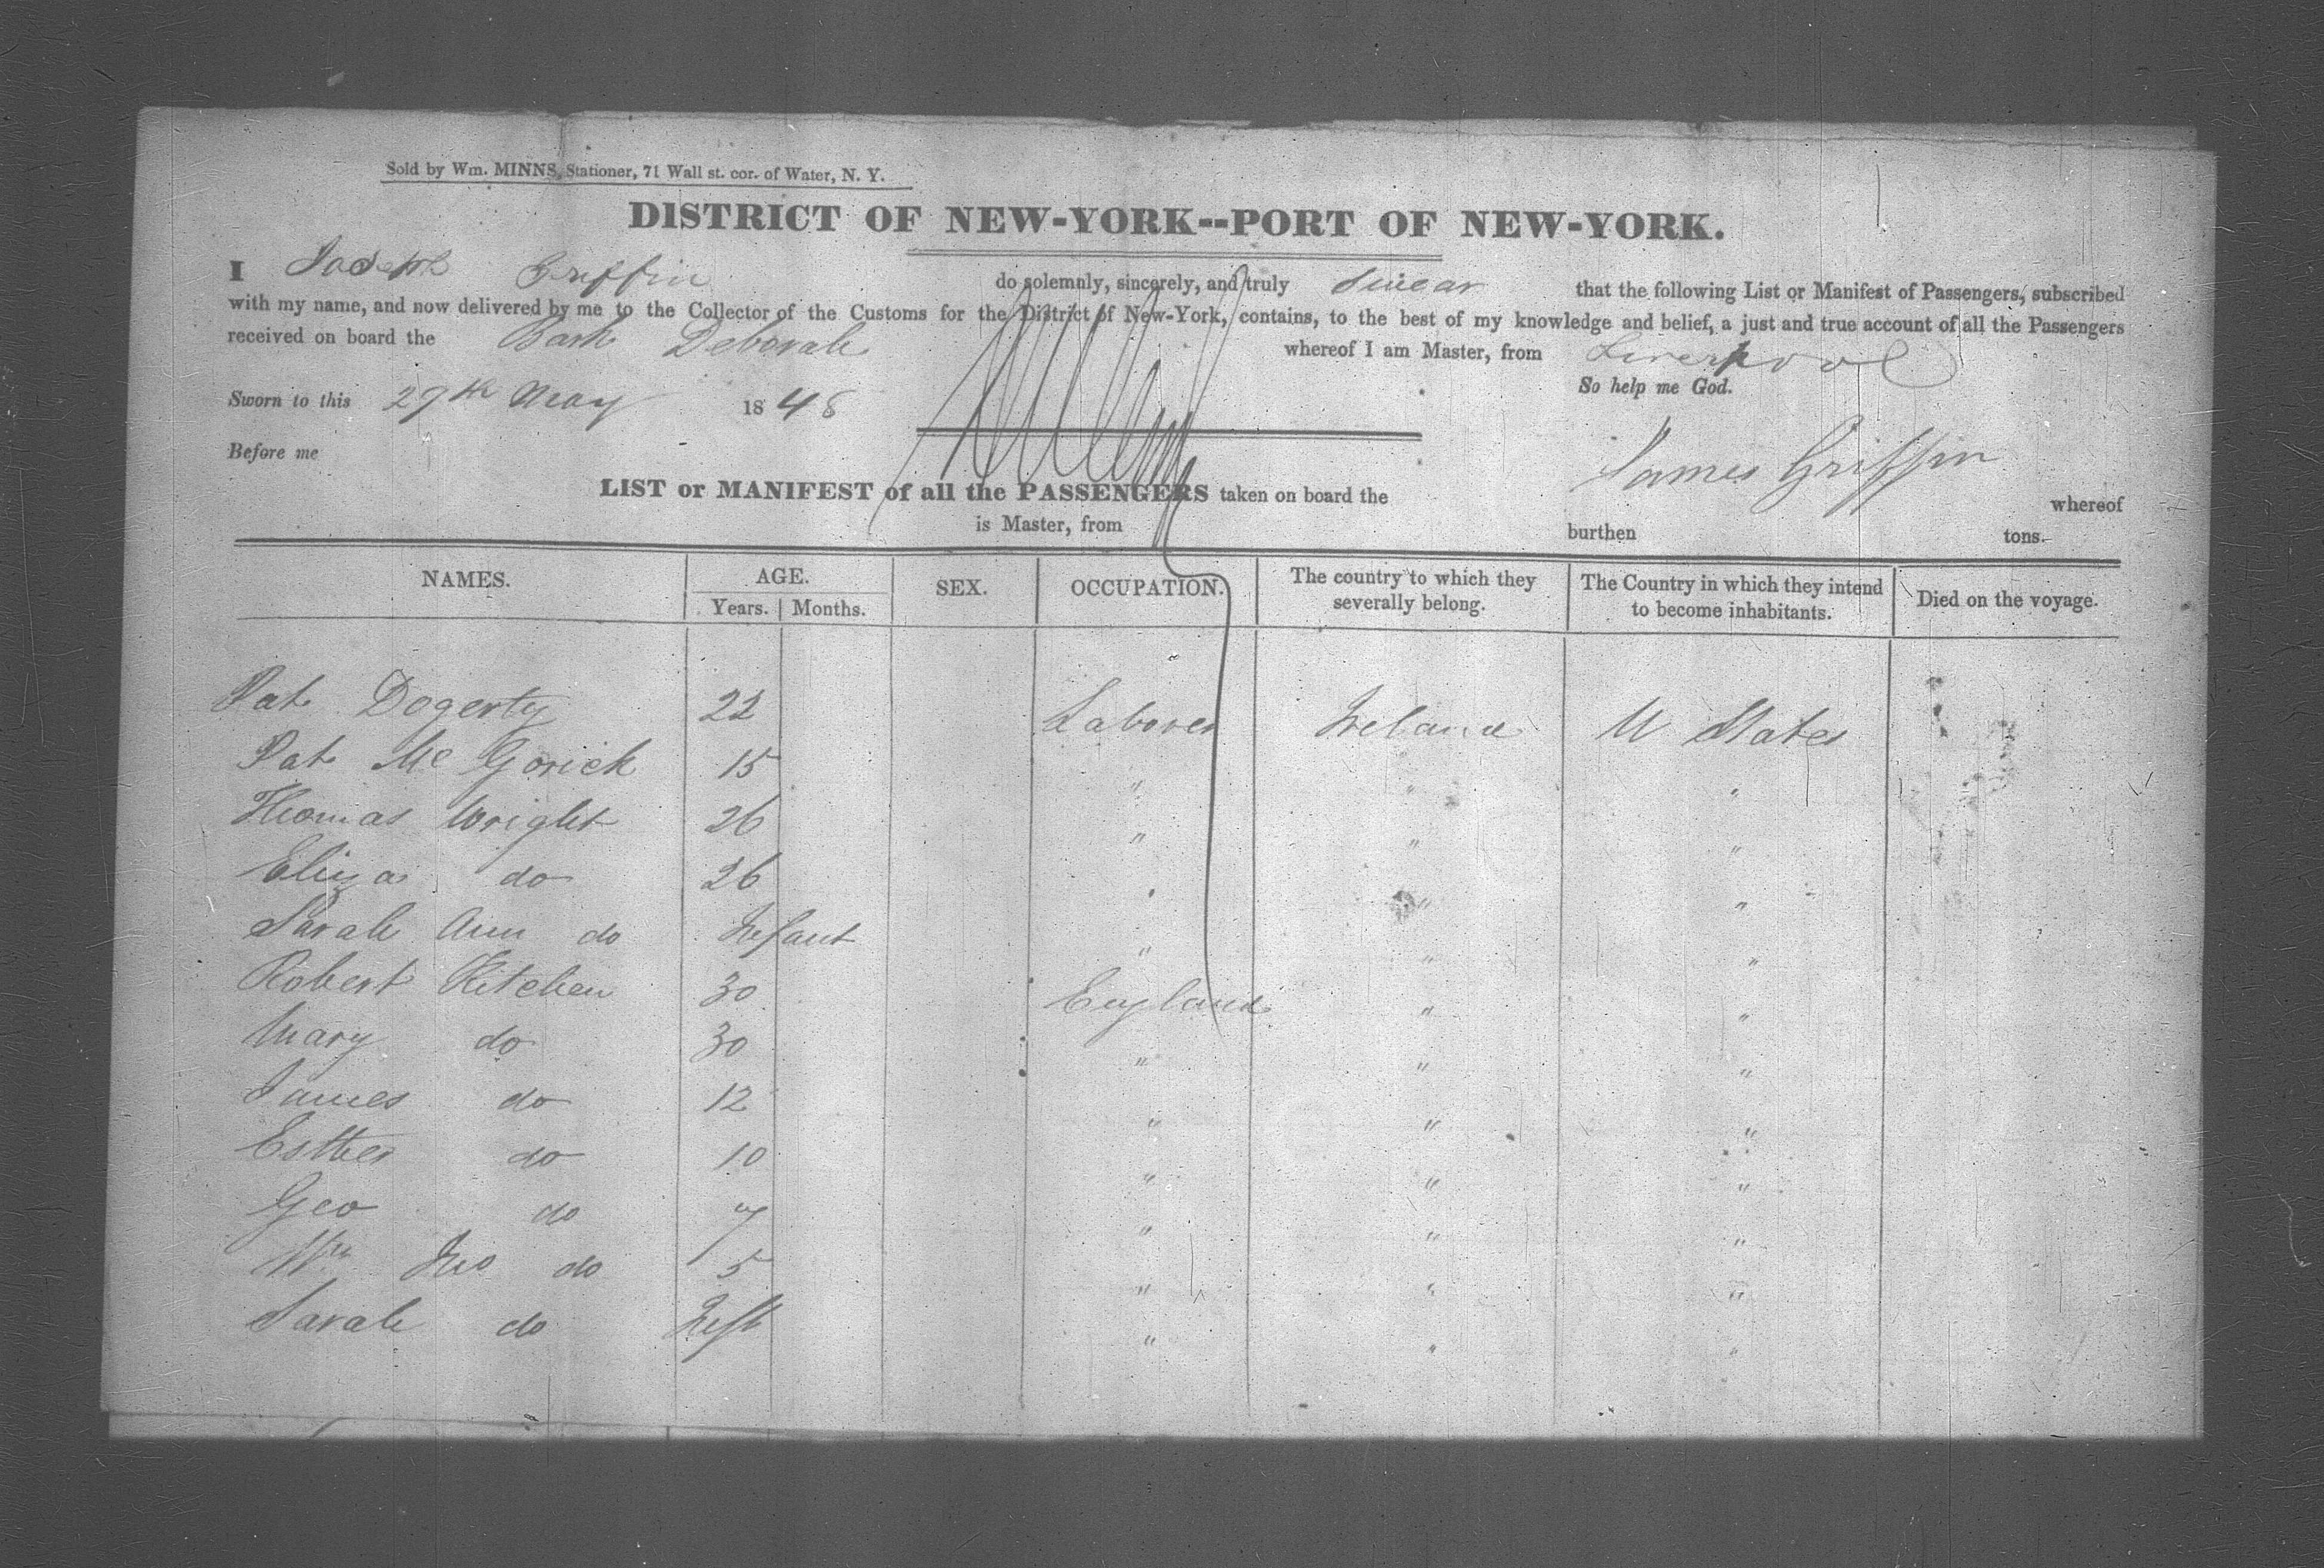 Sold by Wm. MINNS, Stationer, 71 Wall st. cor. of Water, N. Y.
DISTRICT OF NEW-YORK--PORT OF NEW-YORK.
I Joseph Griffin do solemnly, sincerely, and truly swear that the following List or Manifest of Passengers, subscribed
with my name, and now delivered by me to the Collector of the Customs for the District of New-York, contains, to the best of my knowledge and belief, a just and true account of all the Passengers
received on board the Bark Deborah whereof I am Master, from Liverpool
So help me God.
Sworn to this 29th May 1848
James Griffin
Before me
LIST or MANIFEST of all the PASSENGERS taken on board the whereof
is Master, from burthen tons.
NAMES. AGE. SEX. OCCUPATION. The country to which they severally belong. The Country in which they intend to become inhabitants. Died on the voyage.
Years. Months.
Pat. Dogerty 22 Laborer Ireland U States
Pat Mc Gorick 15 " " "
Thomas Wright 26 " " "
Eliza do 26 " " "
Sarah Ann do Infant " " "
Robert Kitchen 30 England " "
Mary do 30 " " "
James do 12 " " "
Esther do 10 " " "
Geo do 7 " " "
Wm Jno do 5 " " "
Sarah do Inft " " "